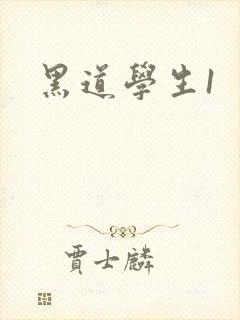 黑道學生1
賈士麟